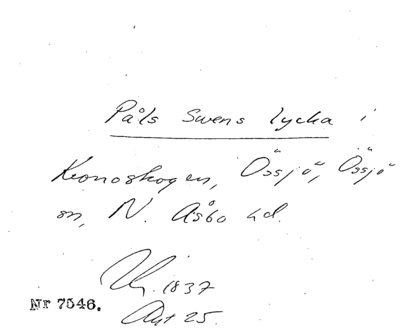 Påls Swens lycka i
Kronoskogen, Össjö, Össjö
sn, N. Åsbo hd.
1837
Akt 25.
Nr 7546.